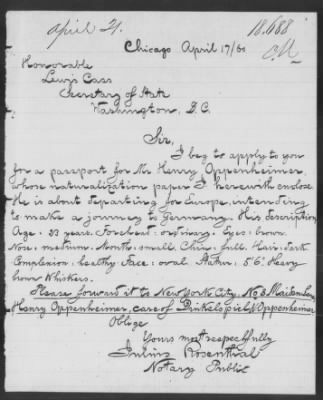 April 21.
18,688
Chicago April 17/60
Honorable
Lewis Cass
Secretary of State
Washington, D.C.
Sir,
I beg to apply to you
for a passport for Mr Henry Oppenheimer,
whose naturalization paper I herewith enclose
He is about departing for Europe, intending
to make a journey to Germany. His description
Age: 23 years. Forehead: ordinary. Eyes: brown.
Nose: medium. Mouth: small. Chin: full. Hair: dark
Complexion: healthy Face: oval Statur: 5'6. Heavy
brown Whiskers.
Please forward it to New York City, No 3 Maiden Lane
Henry Oppenheimer, care of Dinkelspiel & Oppenheimer
Oblige
Yours most respectfully
Julius Rosenthal
Notary Public